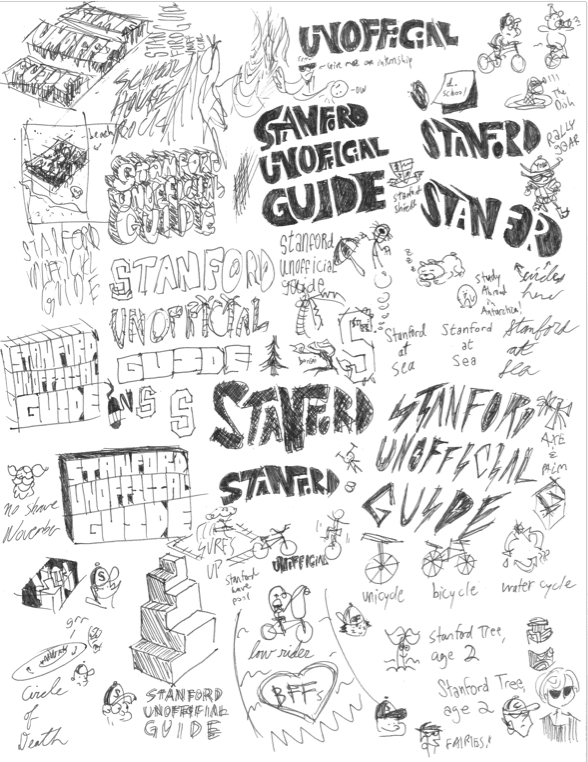 UNOFFICIAL
give me an internship
OW
d.
School
!!!
The
Dish
STANFORD
UNOFFICIAL
GUIDE
STANFORD
RALLY
GEAR
SCHOOL
HOUSE
ROCK
STANFORD
UNOFFICIAL
GUIDE
STANFORD
STANFORD
UNOFFICIAL
GUIDE
STANFORD
UNOFFICIAL
GUIDE
Stanford
unofficial
guide
study
Abroad
in
Antarctica!
circles
here
Stanford
at
Sea
Stanford
at
Sea
Stanford
at
Sea
STANFORD
UNOFFICIAL
GUIDE
S
S
S
STANFORD
STANFORD
STANFORD
UNOFFICIAL
GUIDE
AXE
&
PALM
STANFORD
UNOFFICIAL
GUIDE
no shave
November
SURFS
UP
stanford
wave
pool
UNOFFICIAL
unicycle
bicycle
water cycle
S
low rider
BFFs
grr
Circle
of
Death
S
STANFORD
UNOFFICIAL
GUIDE
Stanford Tree,
age 2
Stanford Tree,
age 2
FAIRIES!